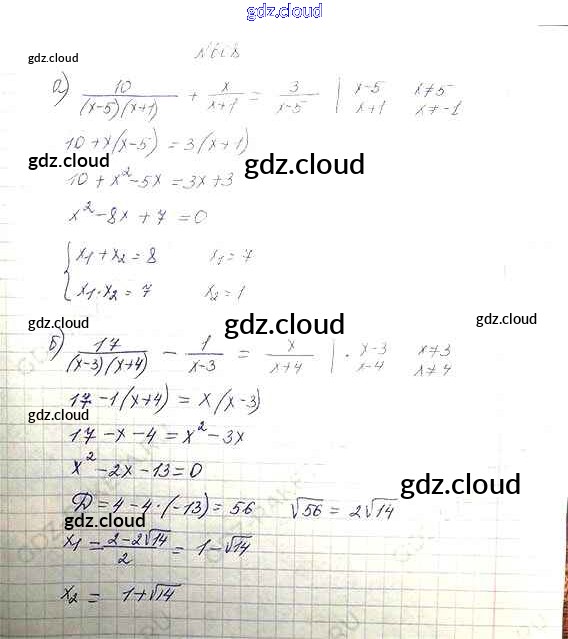 gdz.cloud
№618
gdz.cloud gdz.cloud
а) 10/((x-5)(x+1)) + x/(x+1) = 3/(x-5) | x-5 x+1 x≠5 x≠-1
10+x(x-5) = 3(x+1)
gdz.cloud gdz.cloud
10 + x²-5x = 3x+3
x²-8x+7=0
{ x₁+x₂=8 x₁=7
x₁·x₂=7 x₂=1
gdz.cloud gdz.cloud gdz.cloud
б) 17/((x-3)(x+4)) - 1/(x-3) = x/(x+4) | · x-3 x-4 x≠3 x≠4
17-1(x+4) = x(x-3)
gdz.cloud
17-x-4 = x²-3x
x²-2x-13=0
gdz.cloud
D=4-4·(-13)=56 √56=2√14
gdz.cloud gdz.cloud
x₁ = (2-2√14)/2 = 1-√14
x₂ = 1+√14